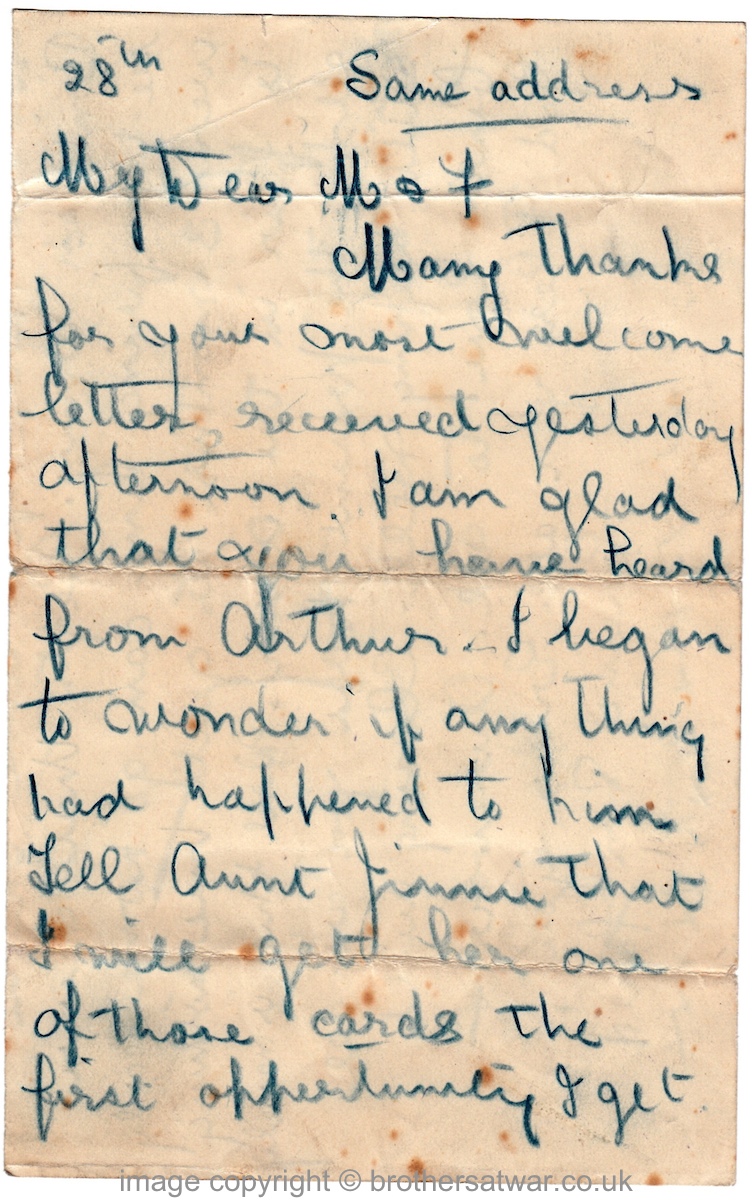 28th Same address
My Dear M & F
Many Thanks
for your most welcome
letter, received yesterday
afternoon I am glad
that you have heard
from Arthur - I began
to wonder if any thing
had happened to him.
Tell Aunt Jinnie that
I will get her one
of those cards the
first oppertunity I get
image copyright © brothersatwar.co.uk